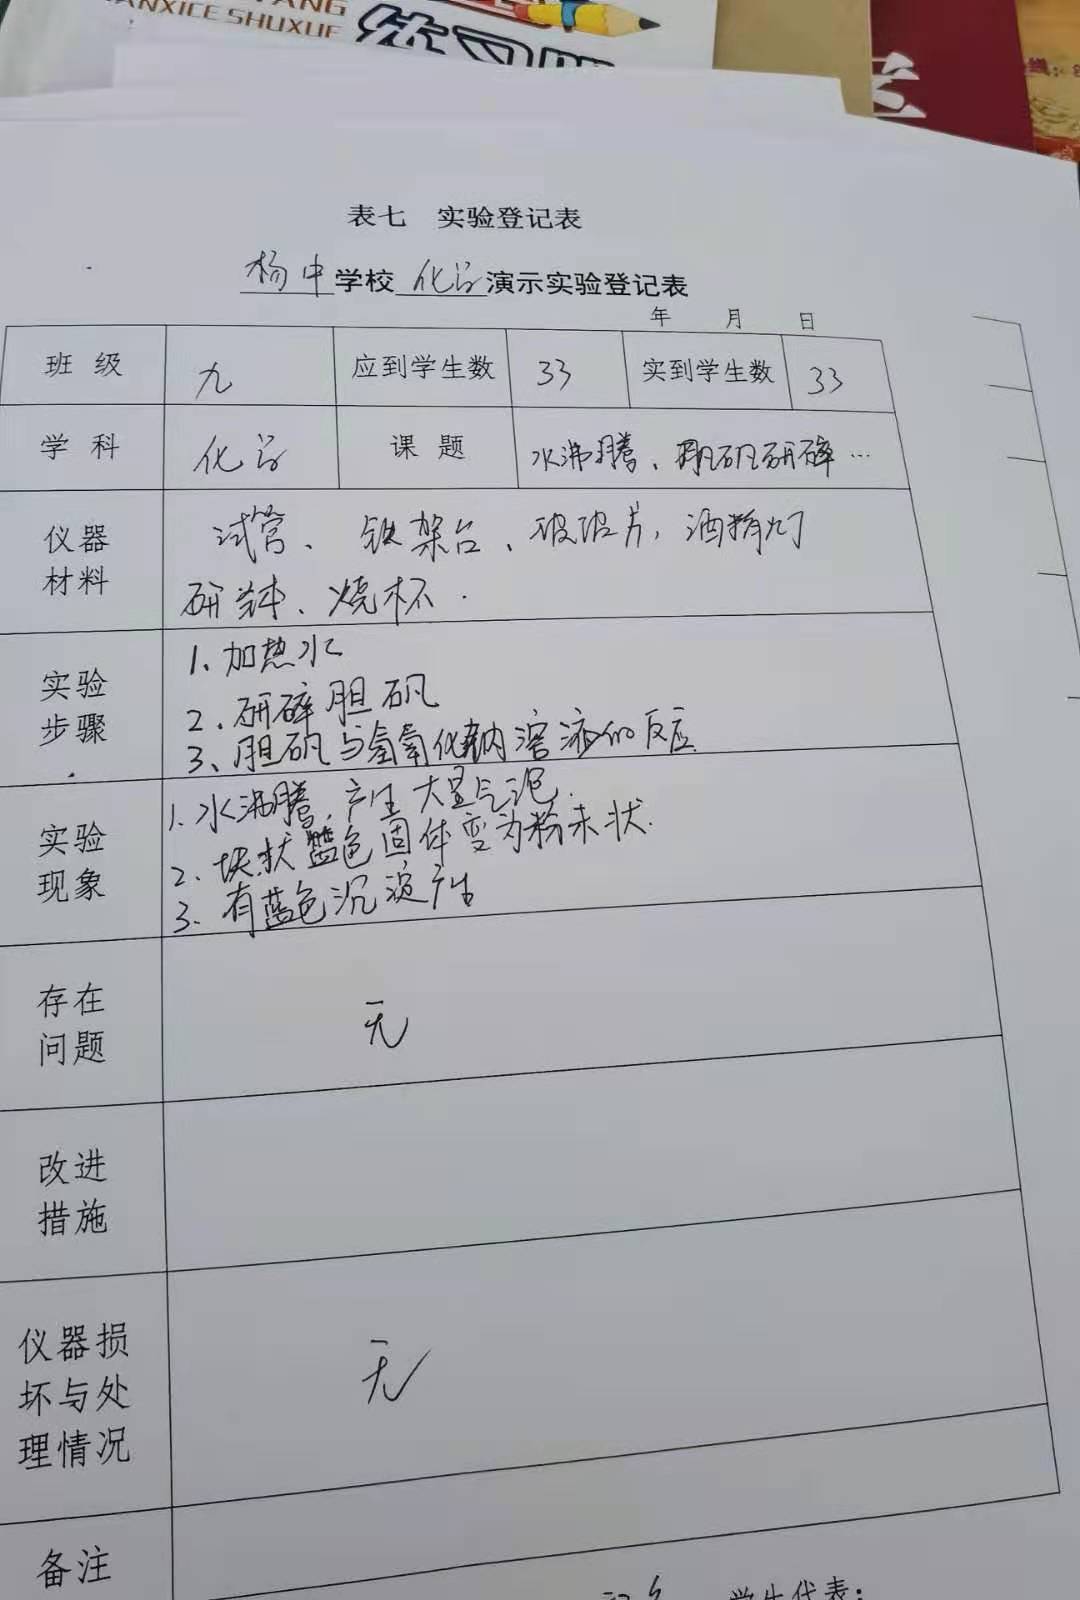 ANXICE SHUXUE
练习册
表七 实验登记表
杨中学校化学演示实验登记表
年 月 日
班 级 九 应到学生数 33 实到学生数 33
学 科 化学 课 题 水沸腾、胆矾研碎…
仪器材料 试管、铁架台、玻玻片,酒精灯
研钵、烧杯.
实验步骤 1、加热水
2、研碎胆矾
3、胆矾与氢氧化钠溶液的反应
实验现象 1、水沸腾,产生大量气泡.
2、块状蓝色固体变为粉末状.
3、有蓝色沉淀产生
存在问题 无
改进措施
仪器损坏与处理情况 无
备注
学生代表: